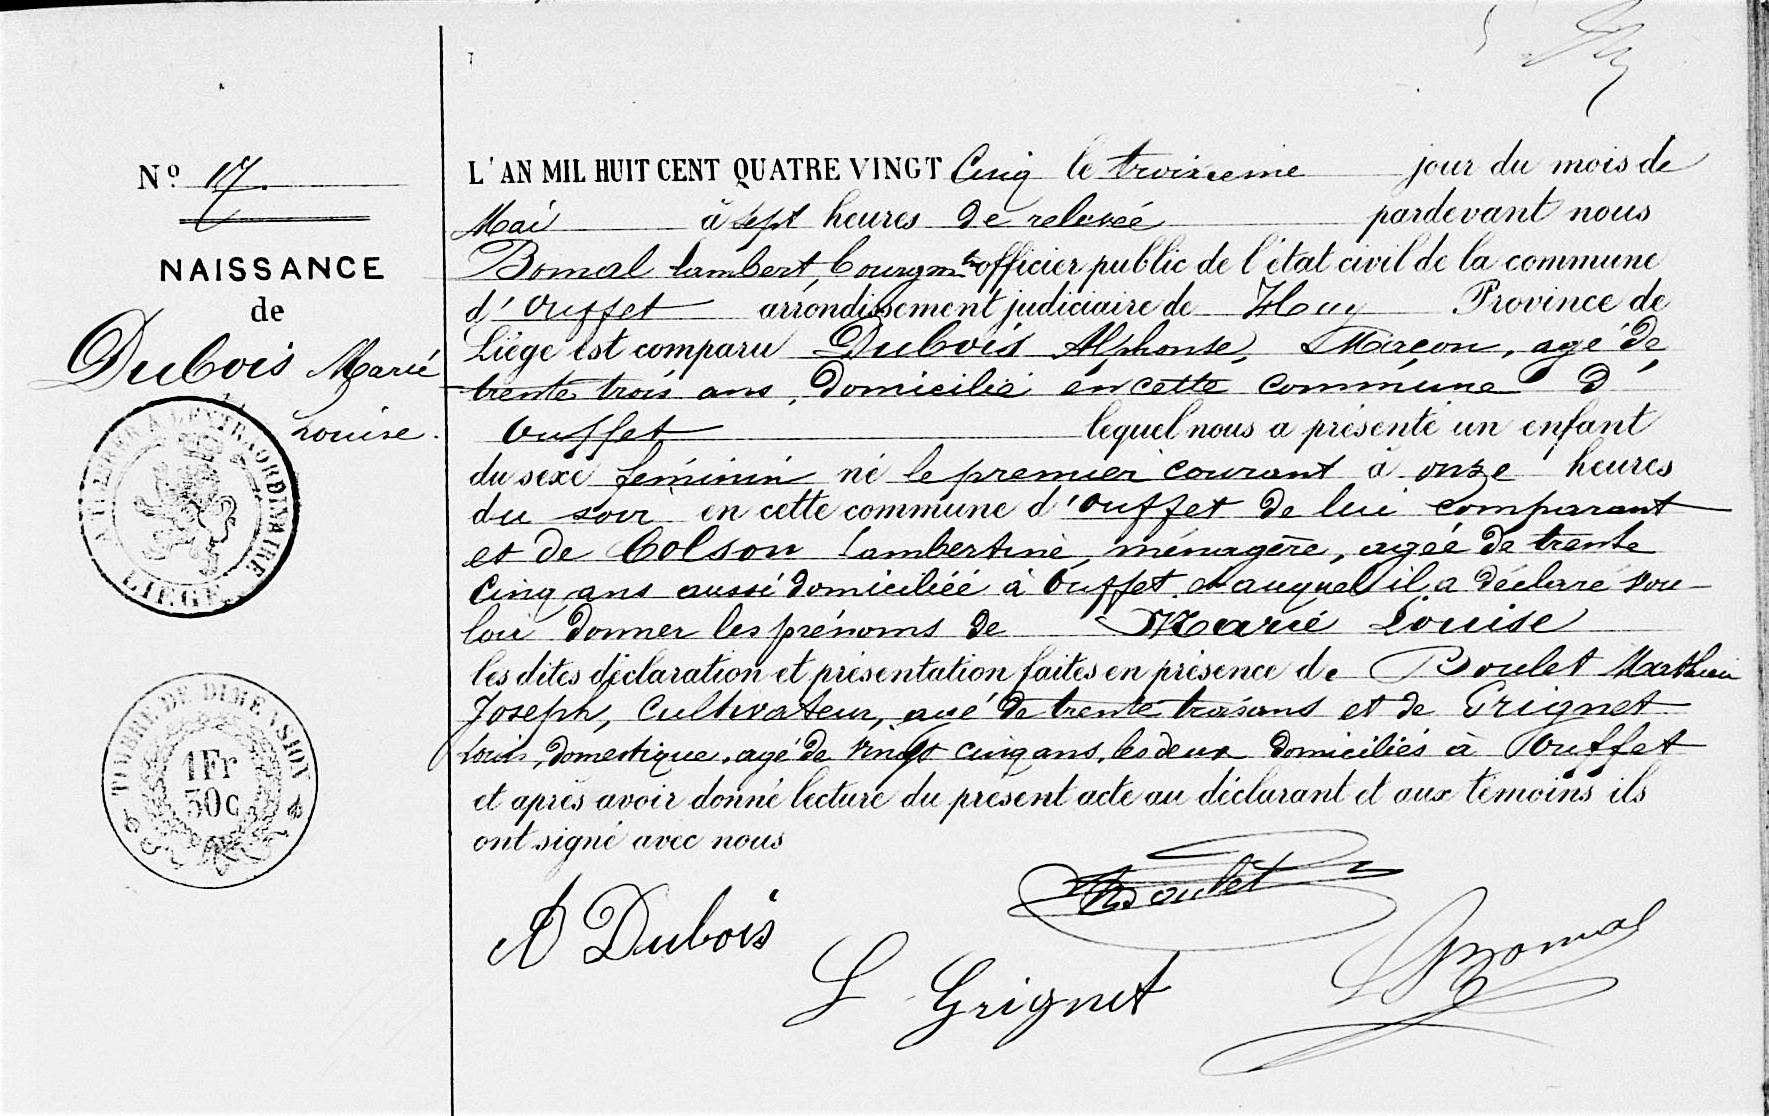 Nº 17.
NAISSANCE
de
Dubois Marie
Louise.
A TIMBRER A L'EXTRAORDINAIRE
LIÉGE
TIMBRE DE DIMENSION
1Fr
50c
L'AN MIL HUIT CENT QUATRE VINGT Cinq le troisieme jour du mois de
Mai à sept heures de relevée pardevant nous
Bomal Lambert, Bourgm^tre officier public de l'état civil de la commune
d'Ouffet arrondissement judiciaire de Huy Province de
Liége est comparu Dubois Alphonse, Maçon, agé de
trente trois ans, domicilié en cette commune d'
Ouffet lequel nous a présenté un enfant
du sexe féminin né le premier courant à onze heures
du soir en cette commune d'Ouffet de lui comparant
et de Colson Lambertine, ménagère, agée de trente
cinq ans aussi domiciliée à Ouffet et auquel il a déclaré vou-
loir donner les prénoms de Marie Louise
les dites déclaration et présentation faites en présence de Boulet Mathieu
Joseph, Cultivateur, agé de trente trois ans et de Grignet
Louis, domestique, agé de vingt cinq ans, les deux domiciliés à Ouffet
et après avoir donné lecture du présent acte au déclarant et aux témoins ils
ont signé avec nous
Boulet
A Dubois
L Bomal
L Grignet